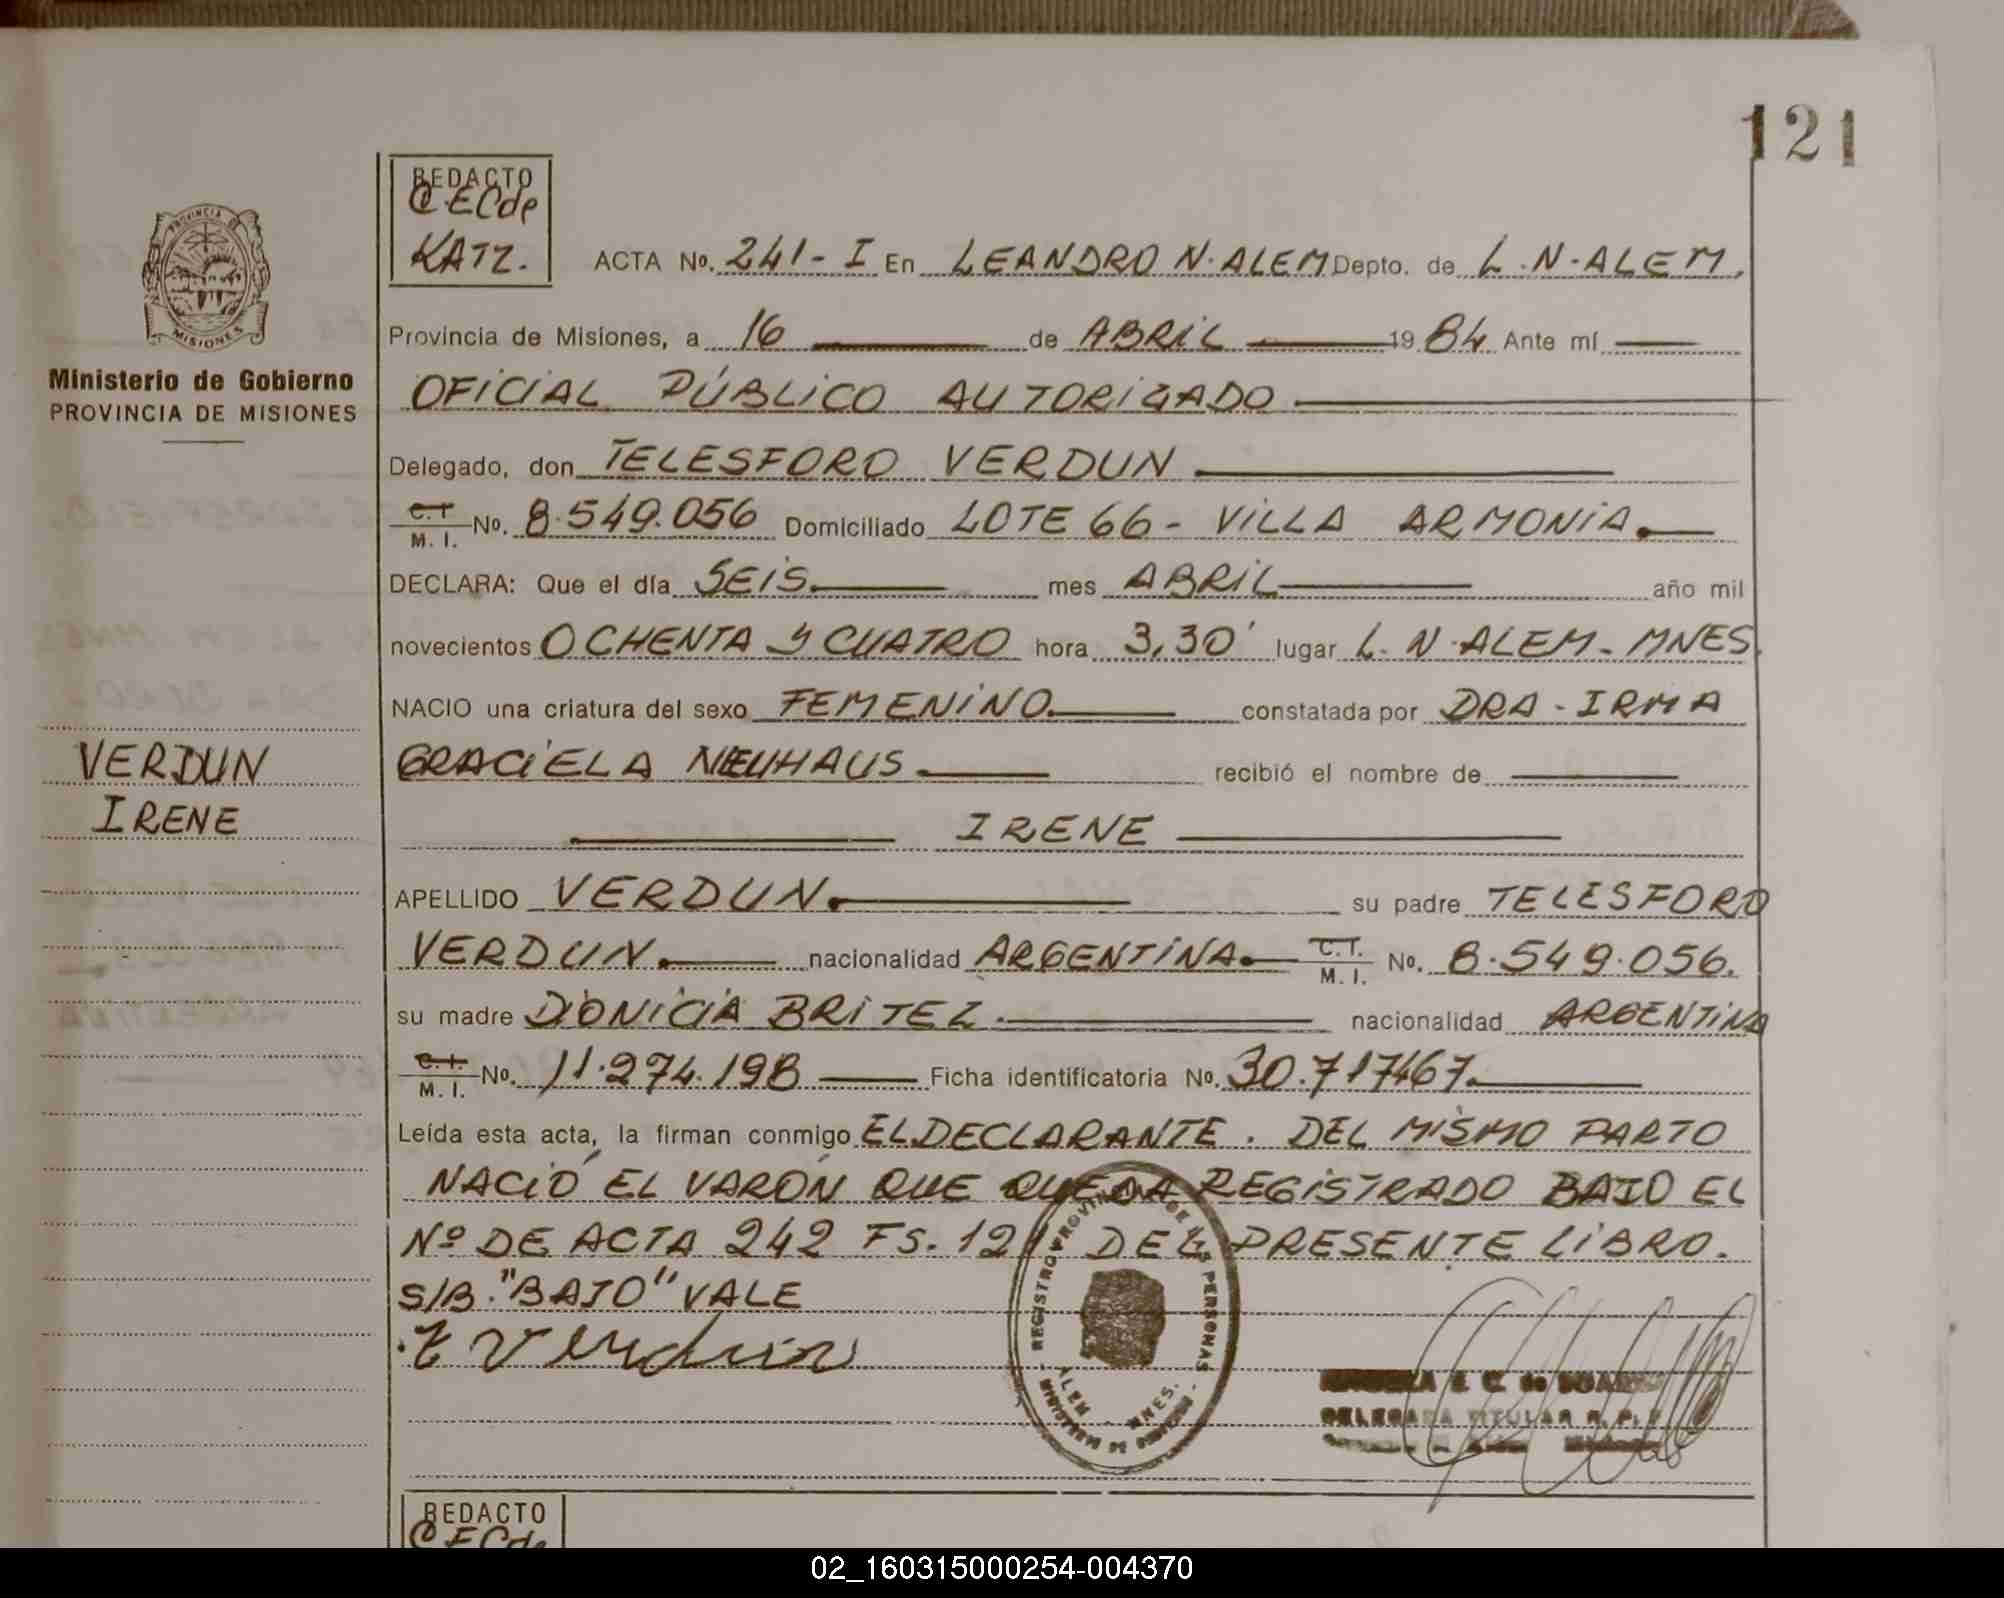 121
REDACTO
C.E.C de
KATZ.
ACTA No. 241-I En LEANDRO N. ALEM Depto. de L.N. ALEM,
Provincia de Misiones, a 16 de ABRIL 1984 Ante mí
OFICIAL PÚBLICO AUTORIZADO
Delegado, don TELESFORO VERDUN
C. I. M. I. No. 8.549.056 Domiciliado LOTE 66 - VILLA ARMONIA.
DECLARA: Que el día SEIS. mes ABRIL año mil
novecientos OCHENTA Y CUATRO hora 3,30' lugar L. N. ALEM - MNES.
NACIO una criatura del sexo FEMENINO. constatada por DRA. IRMA
GRACIELA NEUHAUS. recibió el nombre de
IRENE
APELLIDO VERDUN. su padre TELESFORO
VERDUN. nacionalidad ARGENTINA. C. I. M. I. No. 8.549.056.
su madre DIONICIA BRITEZ. nacionalidad ARGENTINA
C. I. M. I. No. 11.274.198 Ficha identificatoria No. 30.717.467.
Leída esta acta, la firman conmigo EL DECLARANTE. DEL MISMO PARTO
NACIÓ EL VARÓN QUE QUEDA REGISTRADO BAJO EL
Nº DE ACTA 242 FS. 121 DEL PRESENTE LIBRO.
S/B. "BAJO" VALE
T Verdun
REGISTRO PROVINCIAL DE LAS PERSONAS
ALEM - MNES.
DELEGADA TITULAR R. P. P.
PROVINCIA DE
MISIONES
Ministerio de Gobierno
PROVINCIA DE MISIONES
VERDUN
IRENE
REDACTO
C.E.C de
02_160315000254-004370